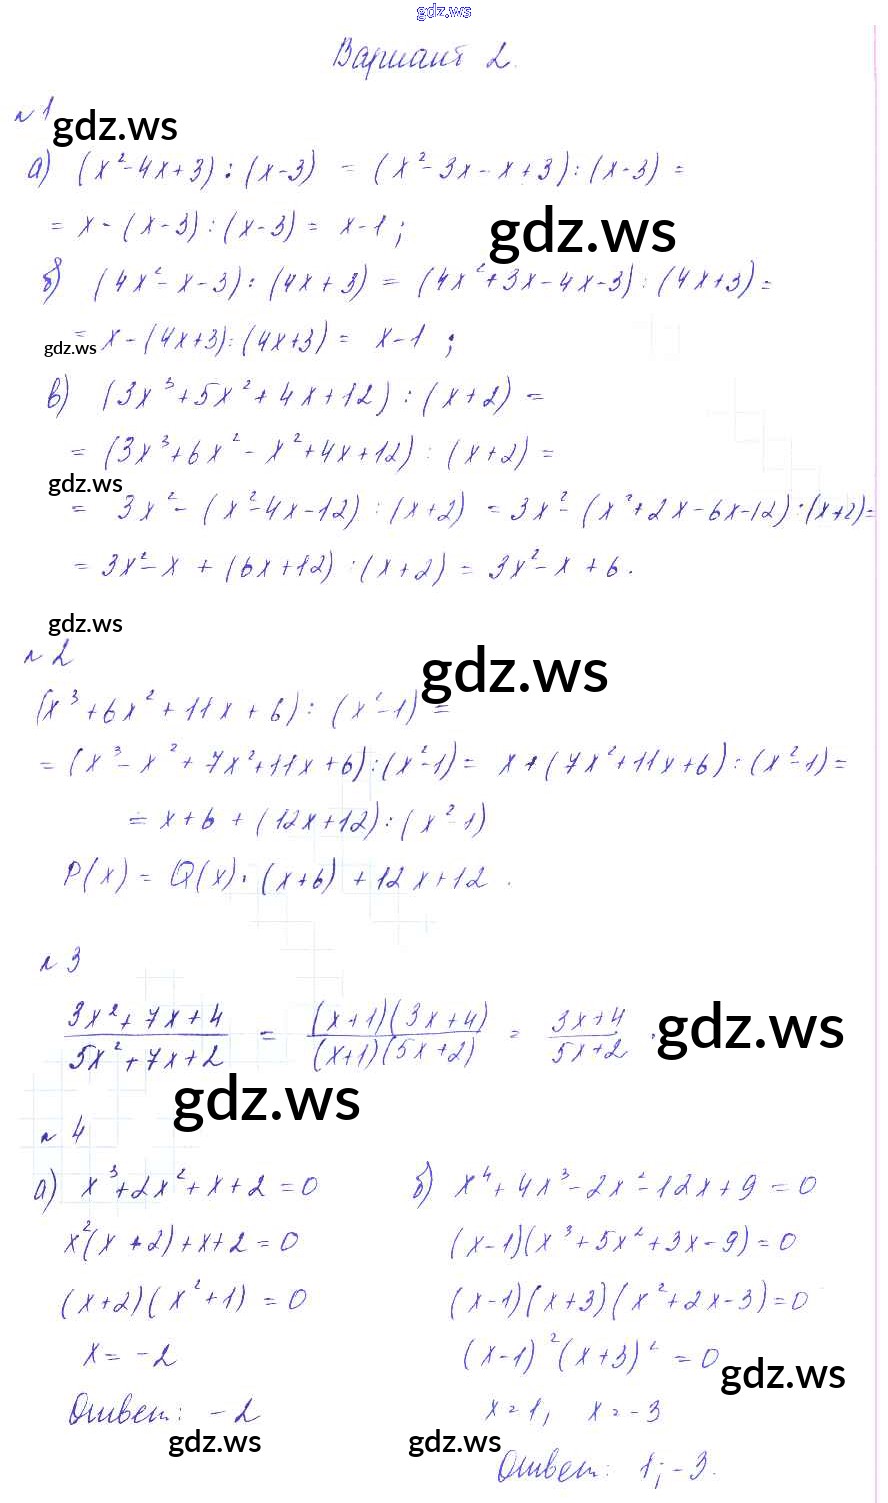 gdz.ws
Вариант 2.
№ 1
gdz.ws
а) (x² - 4x + 3) : (x - 3) = (x² - 3x - x + 3) : (x - 3) =
= x - (x - 3) : (x - 3) = x - 1 ;
gdz.ws
б) (4x² - x - 3) : (4x + 3) = (4x² + 3x - 4x - 3) : (4x + 3) =
= x - (4x + 3) : (4x + 3) = x - 1 ;
gdz.ws
в) (3x³ + 5x² + 4x + 12) : (x + 2) =
= (3x³ + 6x² - x² + 4x + 12) : (x + 2) =
gdz.ws
= 3x² - (x² - 4x - 12) : (x + 2) = 3x² - (x² + 2x - 6x - 12) : (x + 2) =
= 3x² - x + (6x + 12) : (x + 2) = 3x² - x + 6.
gdz.ws
№ 2
gdz.ws
(x³ + 6x² + 11x + 6) : (x² - 1) =
= (x³ - x² + 7x² + 11x + 6) : (x² - 1) = x + (7x² + 11x + 6) : (x² - 1) =
= x + 6 + (12x + 12) : (x² - 1)
P(x) = Q(x) · (x + 6) + 12x + 12 .
№ 3
(3x² + 7x + 4)/(5x² + 7x + 2) = ((x + 1)(3x + 4))/((x + 1)(5x + 2)) = (3x + 4)/(5x + 2) .
gdz.ws
gdz.ws
№ 4
а) x³ + 2x² + x + 2 = 0
x²(x + 2) + x + 2 = 0
(x + 2)(x² + 1) = 0
x = -2
Ответ: -2
gdz.ws
б) x⁴ + 4x³ - 2x² - 12x + 9 = 0
(x - 1)(x³ + 5x² + 3x - 9) = 0
(x - 1)(x + 3)(x² + 2x - 3) = 0
(x - 1)²(x + 3)² = 0
gdz.ws
x = 1, x = -3
gdz.ws
Ответ: 1; -3.